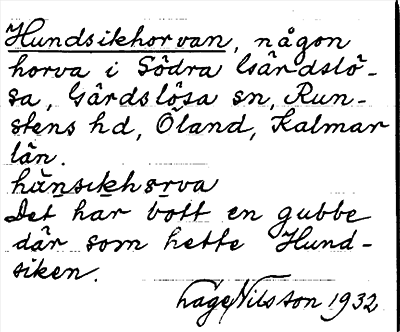 Hundsikhorvan, någon
horva i Södra Gärdslö-
sa, Gärdslösa sn, Run-
stens hd, Öland, Kalmar
län.
Det har bott en gubbe
där som hette Hund-
siken.
Lage Nilsson 1932